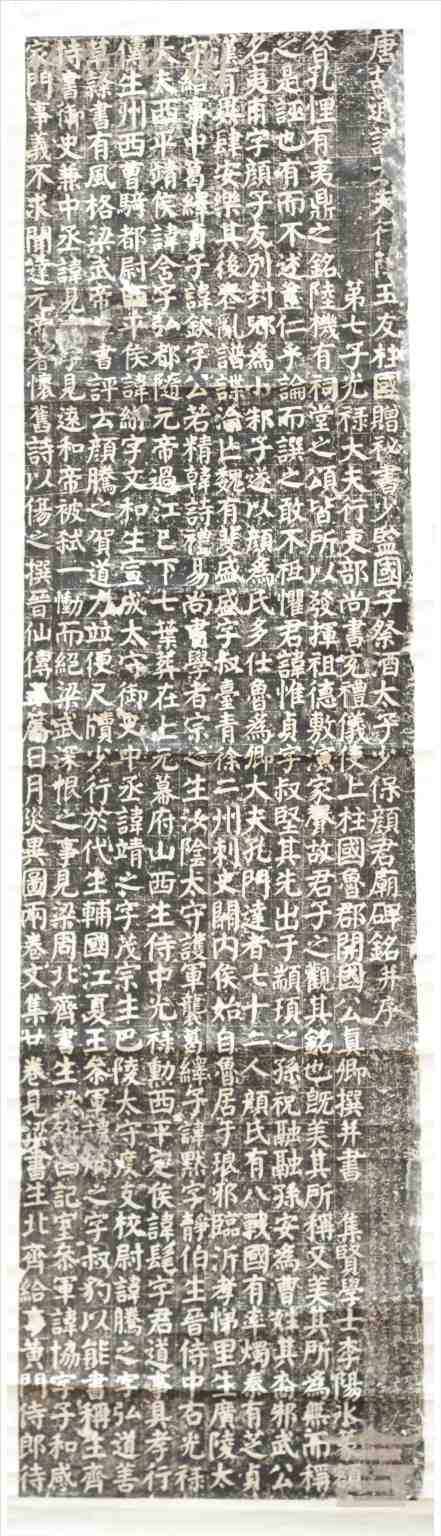 唐故通議大夫行王友柱國贈秘書少監國子祭酒太子少保顏君廟碑銘并序
第七子光祿大夫行吏部尚書充禮儀使上柱國魯郡開國公真卿撰并書 集賢學士李陽冰篆額
昔孔悝有夷鼎之銘陸機有祠堂之頌皆所以發揮祖德敷演家聲故君子之觀其銘也既美其所稱又美其所為無而稱
之是誣也有而不述豈仁乎論而譔之敢不祗懼君諱惟貞字叔堅其先出于顓頊之孫祝融融孫安為曹姓其裔邾武公
名夷甫字顏子友別封郳為小邾子遂以顏為氏多仕魯為卿大夫孔門達者七十二人顏氏有八戰國有率燭秦有芝貞
漢有異肆安樂其後喪亂譜諜淪亡魏有斐盛盛字叔臺青徐二州刺史關內侯始自魯居于琅邪臨沂孝悌里生廣陵太
守給事中葛繹貞子諱欽字公若精韓詩禮易尚書學者宗之生汝陰太守護軍襲葛繹子諱默字靜伯生晉侍中右光祿
大夫西平靖侯諱含字弘都隨元帝過江已下七葉葬在上元幕府山西生侍中光祿勳西平定侯諱髦字君道事具孝行
傳生州西曹騎都尉西平侯諱綝字文和生宣城太守御史中丞諱靖之字茂宗生巴陵太守度支校尉諱騰之字弘道善
草隸書有風格梁武帝草書評云顏騰之賀道力並便尺牘少行於代生輔國江夏王參軍諱炳之字叔豹以能書稱生齊
持書御史兼中丞諱見遠字見遠和帝被弒一慟而絕梁武深恨之事見梁周北齊書生梁鎮西記室參軍諱協字子和感
家門事義不求聞達元帝著懷舊詩以傷之撰晉仙傳五篇日月災異圖兩卷文集廿卷見梁書生北齊給事黃門侍郎待